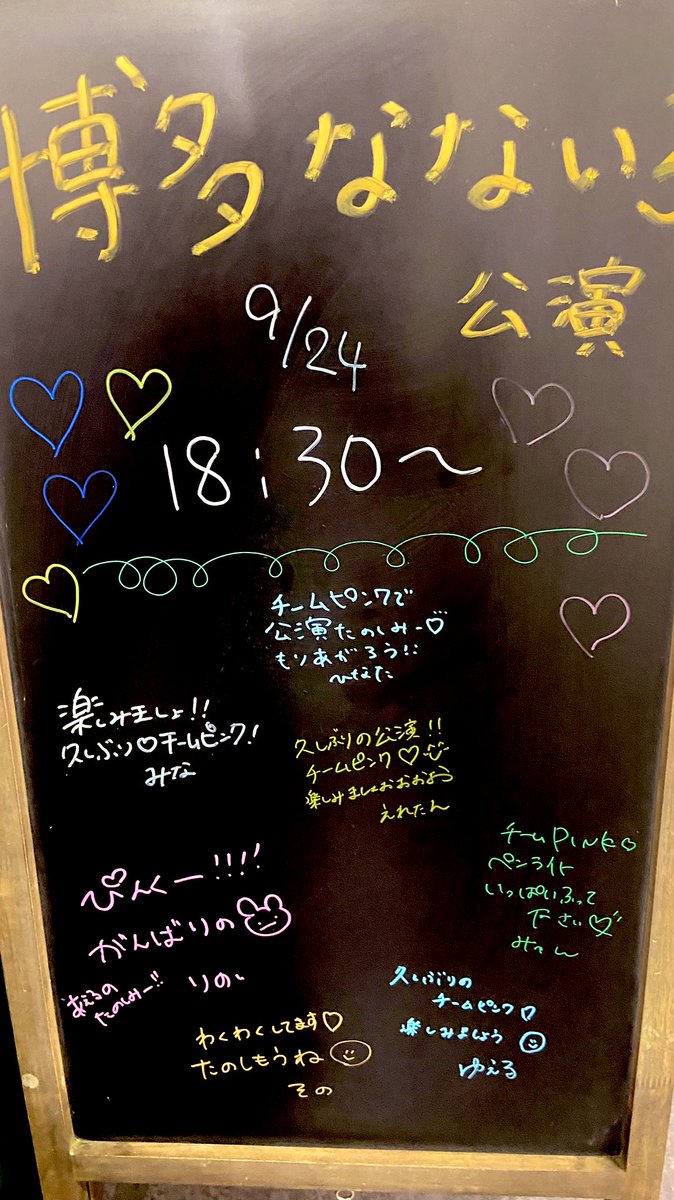 博多なないろ
公演
9/24
18:30〜
チームピンクで
公演たのしみー♡
もりあがろう!!
ひなた
楽しみましょ!!
久しぶり♡チームピンク!
みな
久しぶりの公演!!
チームピンク♡
楽しみましょおおおおう
えれたん
チームPINK♡
ペンライト
いっぱいふって
下さい♡
みてん
ぴんくー!!!!
がんばりの
りのい
あえるの
たのしみー!!
久しぶりの
チームピンク♡
楽しみましょう
ゆえる
わくわくしてます♡
たのしもうね
その